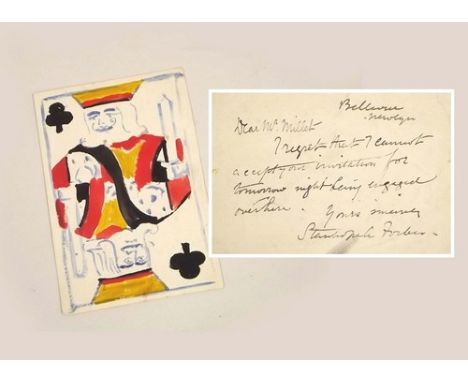 Bellevue
Newlyn
Dear Mr. Millet
I regret that I cannot
accept your invitation for
tomorrow night being engaged
over here. Yours sincerely
Stanhope A Forbes